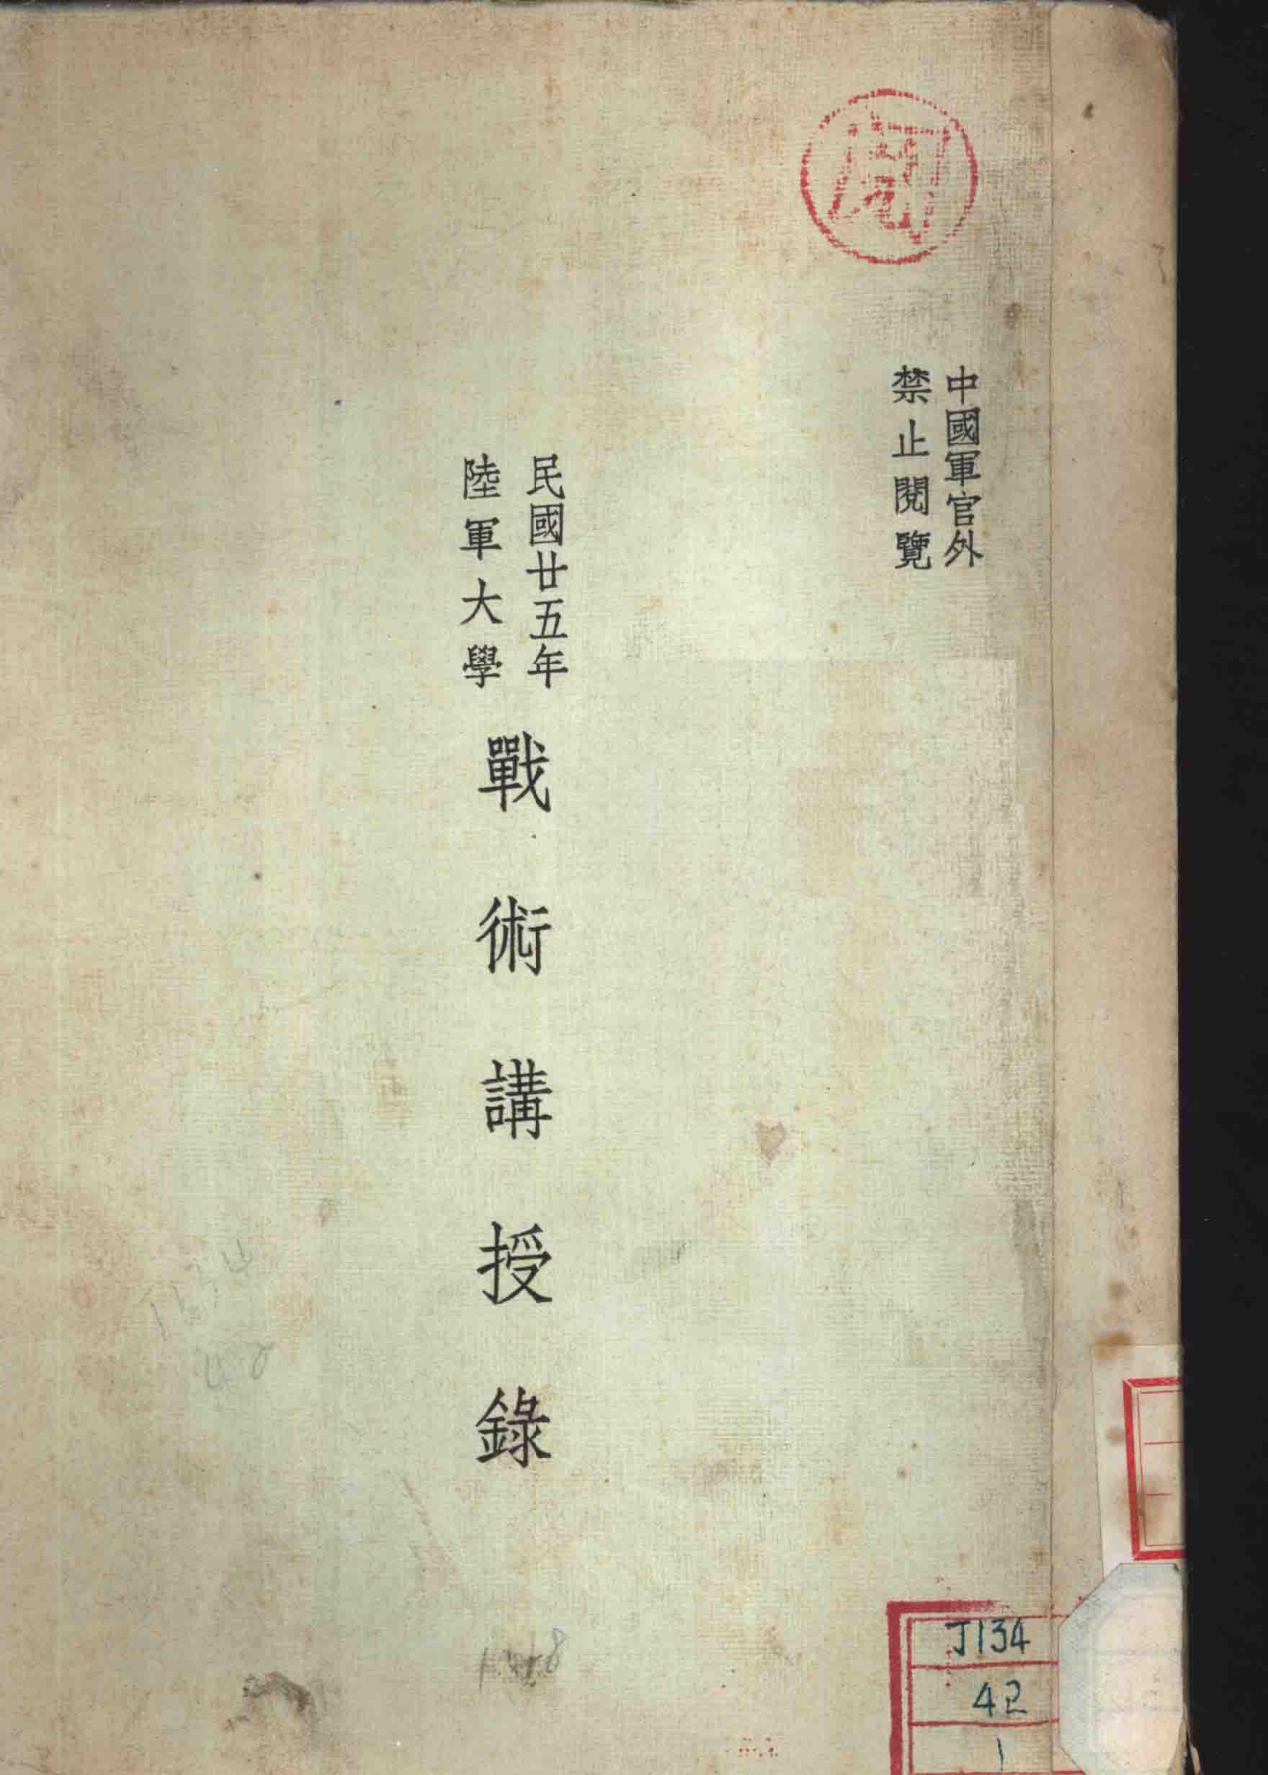 中國軍官外
禁止閱覽
民國廿五年
陸軍大學
戰術講授錄
J134
42
1